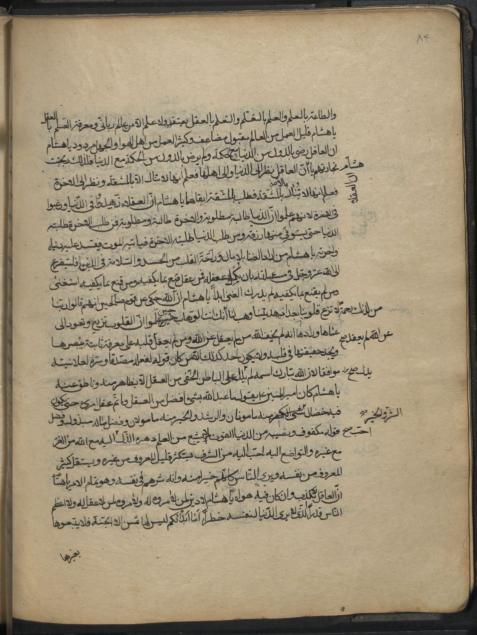 ٨٤
والطاعة بالعلم والعلم بالتعلم والتعلم بالعقل يعتقد ولا علم الا من عالم رباني ومعرفة العلم بالعقل
يا هشام قليل العمل من العالم مقبول مضاعف وكثير العمل من اهل الهوا والجهل مردود يا هشام
ان العاقل رضي بالدون من الدنيا مع الحكمة ولم يرض بالدون من الحكمة مع الدنيا فلذلك ربحت
تجارتهم يا هشام ان العاقل نظر الى الدنيا والى اهلها فعلم انها لا تنال الا بالمشقة ونظر الى الاخرة
فعلم انها لا تنال الا بالمشقة فطلب بالمشقة ابقاهما يا هشام ان العقلاء زهدوا في الدنيا ورغبوا
ان العقلاء
في الاخرة لانهم علموا ان الدنيا طالبة مطلوبة والاخرة طالبة ومطلوبة فمن طلب الاخرة طلبته
الدنيا حتى يستوفي منها رزقه ومن طلب الدنيا طلبته الاخرة فياتيه الموت فيفسد عليه دنياه
واخرته يا هشام من اراد الغنا بلا مال وراحة القلب من الحسد والسلامة في الدين فليتضرع
الى الله عز وجل في مسالته بان يكمل عقله فمن عقل قنع بما يكفيه ومن قنع بما يكفيه استغنى
ومن لم يقنع بما يكفيه لم يدرك الغنى ابدا يا هشام ان الله حكى عن قوم صالحين انهم قالوا ربنا
لا تزغ قلوبنا بعد اذ هديتنا وهب لنا من لدنك رحمة انك انت الوهاب حين علموا ان القلوب تزيغ وتعود الى
عماها ورداها انه لم يخف الله من لم يعقل عن الله ومن لم يعقل عن الله لم يعقد قلبه على معرفة ثابتة يبصرها
ويجد حقيقتها في قلبه ولا يكون احد كذلك الا من كان قوله لفعله مصدقا وسره لعلانيته
موافقا لان الله تبارك اسمه لم يدل على الباطن الخفي من العقل الا بظاهر منه وناطق عنه
يا هشام كان امير المؤمنين ع يقول ما عبد الله بشئ افضل من العقل وما تم عقل امرئ حتى يكون
فيه خصال شتى الكفر والشر منه مامونان والرشد والخير منه مامولان وفضل ماله مبذول وفضل
قوله مكفوف ونصيبه من الدنيا القوت لا يشبع من العلم دهره الذل احب اليه مع الله من العز
مع غيره والتواضع احب اليه من الشرف يستكثر قليل المعروف من غيره ويستقل كثير
المعروف من نفسه ويرى الناس كلهم خيرا منه وانه شرهم في نفسه وهو تمام الامر يا هشام
ان العاقل لا يكذب وان كان فيه هواه يا هشام لا دين لمن لا مروة له ولا مروة لمن لا عقل له وان اعظم
الناس قدرا الذي لا يرى الدنيا لنفسه خطرا اما ان ابدانكم ليس لها ثمن الا الجنة فلا تبيعوها
بغيرها